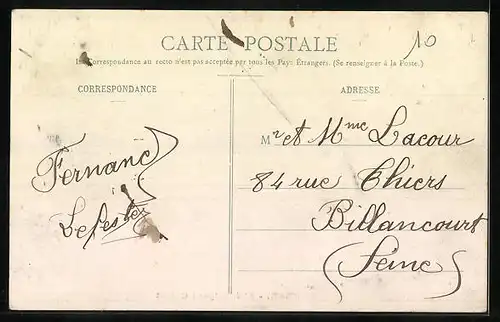 CARTE POSTALE
10
La Correspondance au recto n'est pas acceptée par tous les Pays Étrangers. (Se renseigner à la Poste.)
CORRESPONDANCE
ADRESSE
Fernand
Mr et Mme Lacour
84 rue Thiers
Billancourt
(Seine)